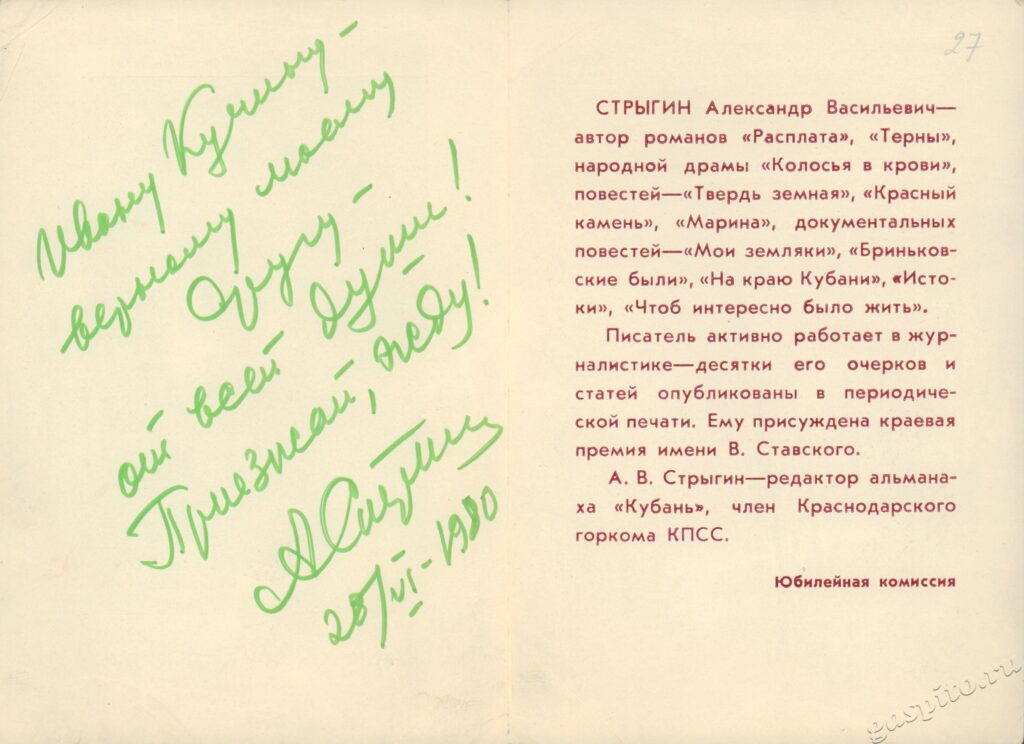 Ивану Кучину –
верному моему
другу –
от всей души!
Приезжай, жду!
АСтрыгин
28/VI-1980
27
СТРЫГИН Александр Васильевич—
автор романов «Расплата», «Терны»,
народной драмы «Колосья в крови»,
повестей—«Твердь земная», «Красный
камень», «Марина», документальных
повестей—«Мои земляки», «Бриньков-
ские были», «На краю Кубани», «Исто-
ки», «Чтоб интересно было жить».
Писатель активно работает в жур-
налистике—десятки его очерков и
статей опубликованы в периодиче-
ской печати. Ему присуждена краевая
премия имени В. Ставского.
А. В. Стрыгин—редактор альмана-
ха «Кубань», член Краснодарского
горкома КПСС.
Юбилейная комиссия
gaspito.ru